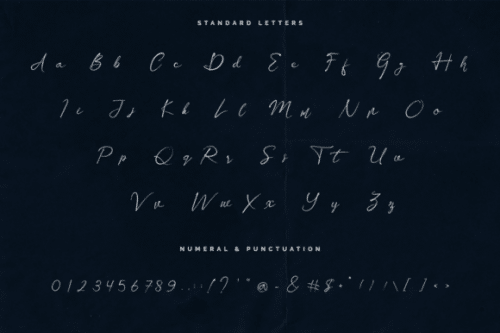 STANDARD LETTERS
A a B b C c D d E e F f G g H h
I i J j K k L l M m N n O o
P p Q q R r S s T t U u
V v W w X x Y y Z z
NUMERAL & PUNCTUATION
0 1 2 3 4 5 6 7 8 9 . , : ; ! ? ' " @ - & # $ + * ( ) / \ [ ] < >